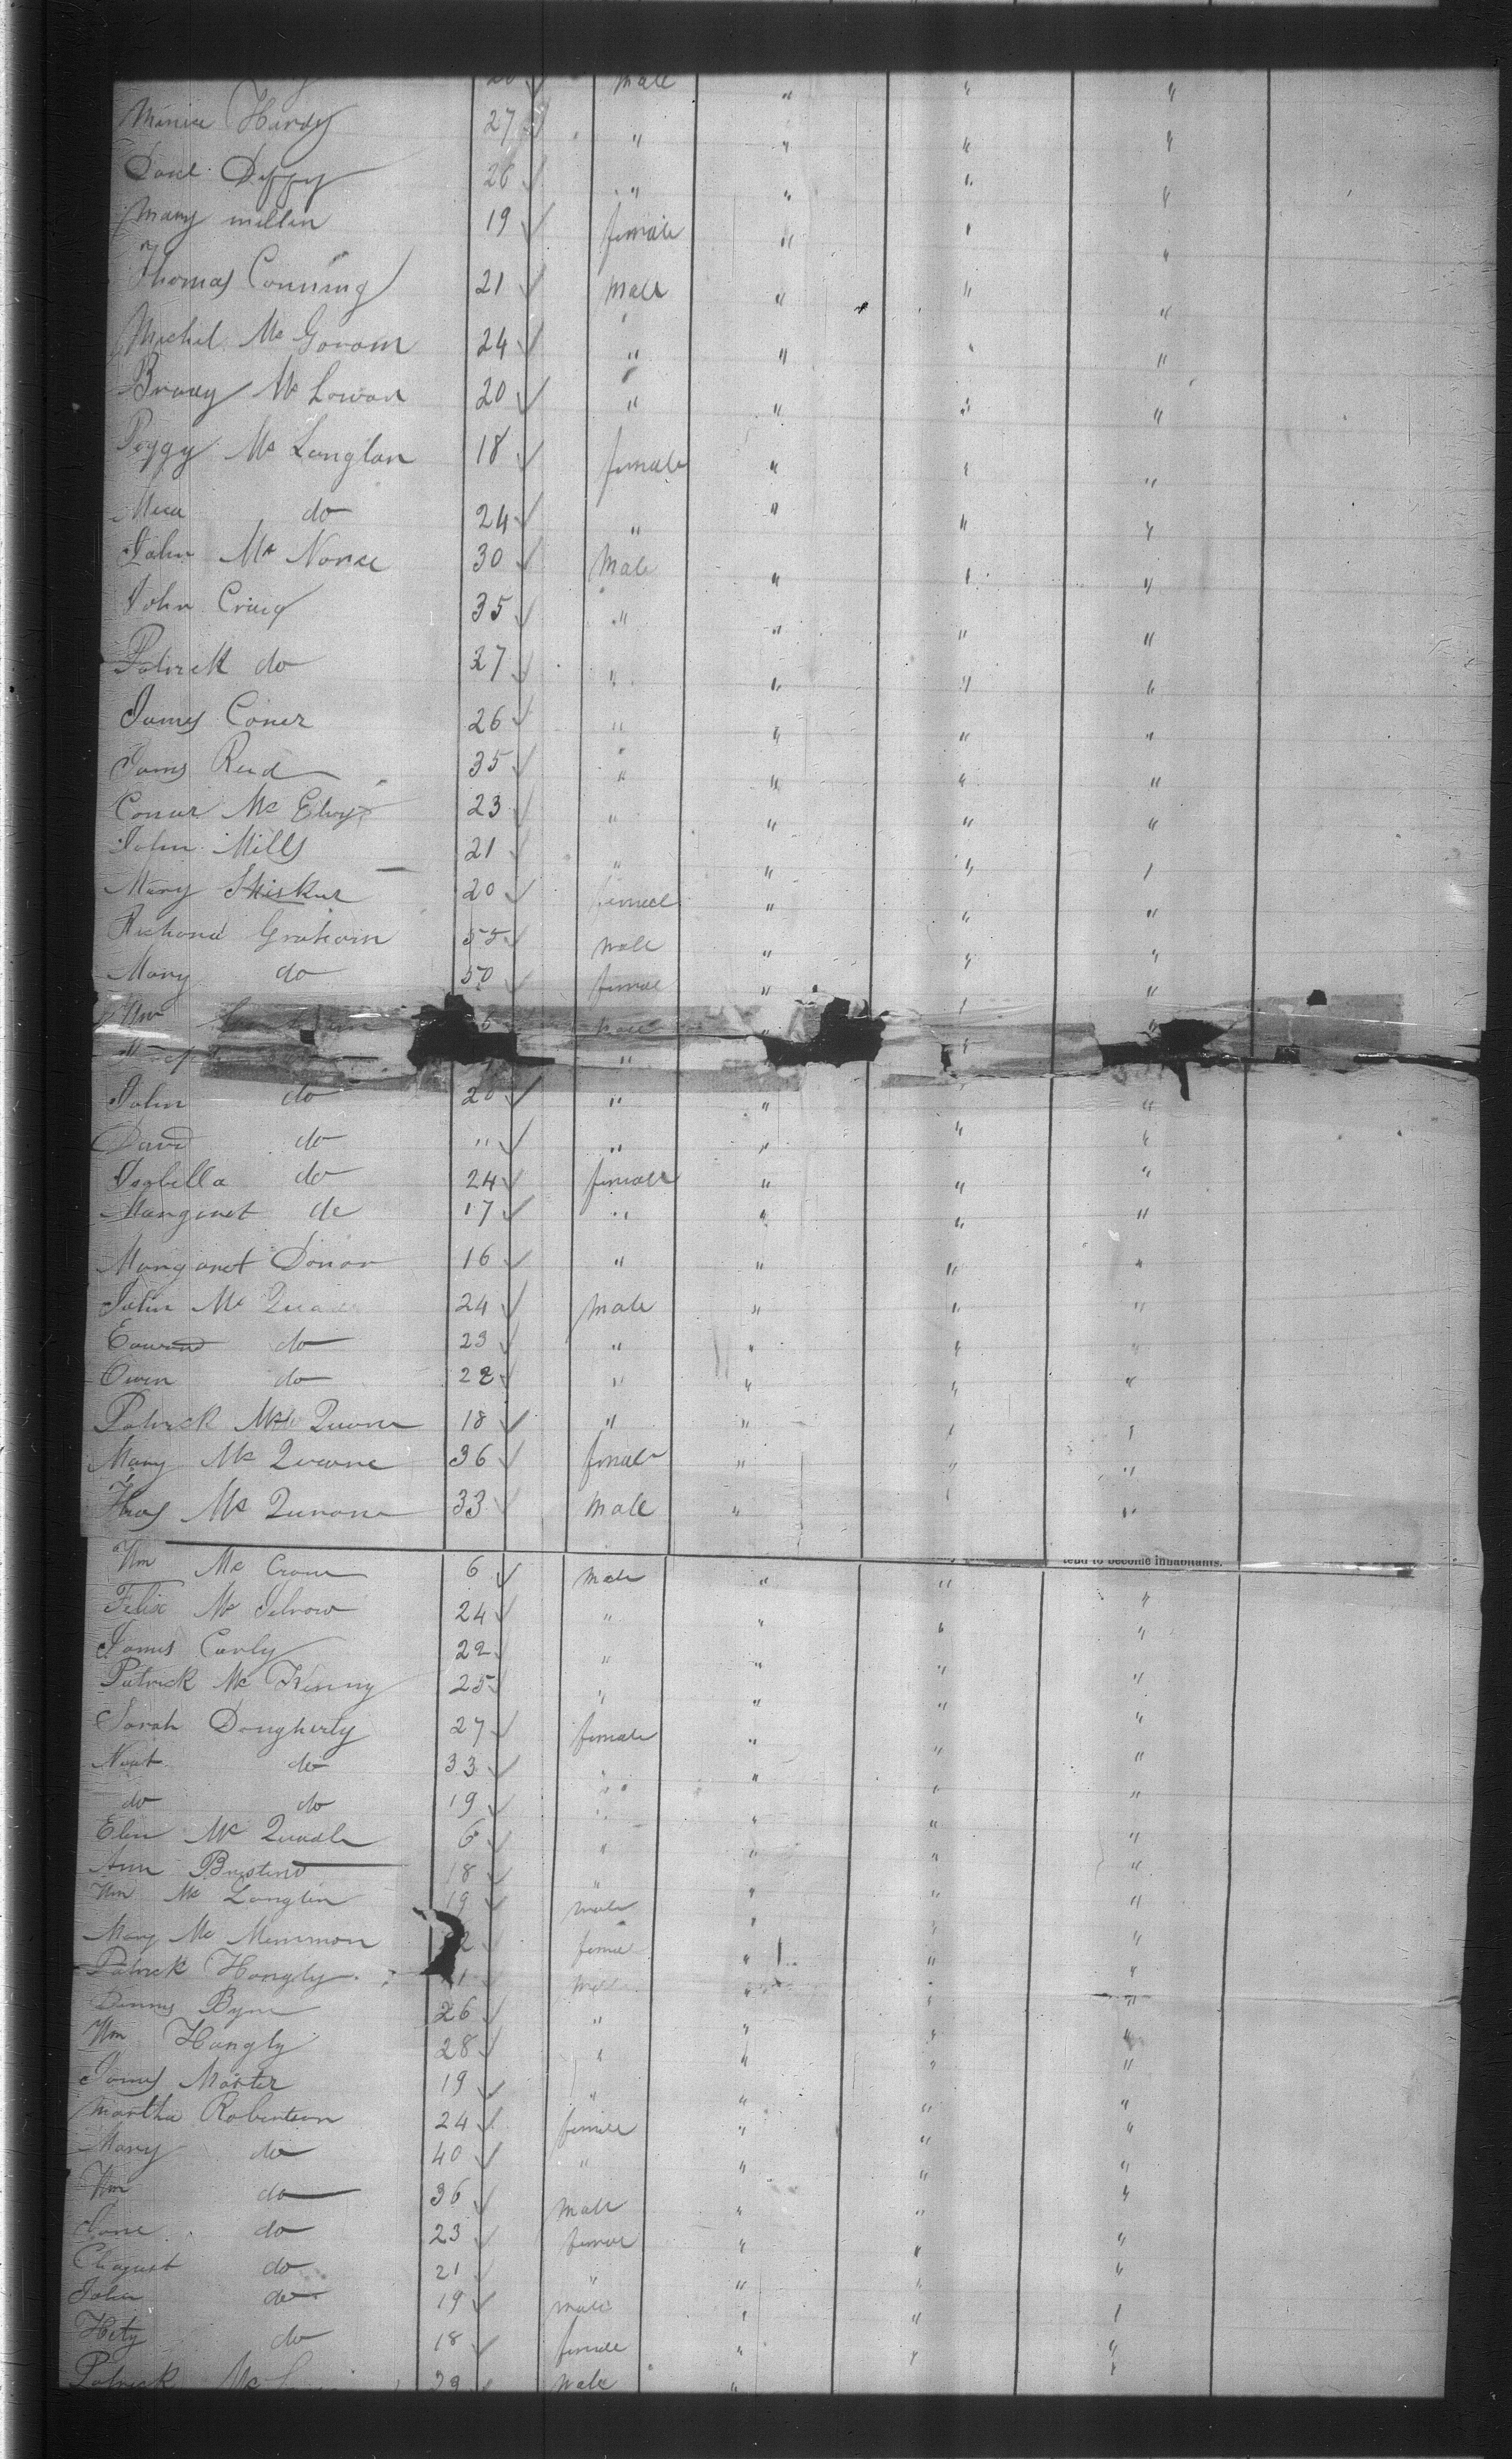 20 Male " " "
Minia Hardy 27 " " " "
Danl Deffy 26 " " " "
Mary millin 19 female " " "
Thomas Conning 21 Male " " "
Michel Mc Govorn 24 " " " "
Brady Mc Lowan 20 " " " "
Peggy Mc Langlan 18 female " " "
do 24 " " " "
John Mc Norse 30 Male " " "
John Craig 35 " " " "
Patrick do 27 " " " "
James Coner 26 " " " "
Jams Reed 35 " " " "
Connr Mc Elroy 23 " " " "
John Mills 21 " " " "
Mary 20 femeal " " "
Richand Graham 55 male " " "
Mary do 50 female " " "
Wm male " " "
" "
John do 20 " " "
David do " " " " "
Isabella do 24 female " " "
Margaret do 17 " " " "
Margaret Donar 16 " " " "
John Mc Quade 24 male " " "
Edward do 23 " " " "
Owen do 22 " " " "
Patrick Mc Quone 18 " " " "
Mary Mc Quone 36 female " " "
Thos Mc Qurone 33 Male " " "
tend to become inhabitants.
Wm Mc Crone 6 Male " " "
Felix Mc Ilrow 24 " " " "
James Carly 22 " " " "
Patrick Mc Kenny 25 " " " "
Sarah Dougherty 27 female " " "
Neat do 33 " " " "
do do 19 " " " "
Elen Mc Quade 6 " " " "
Ann 18 " " " "
Wm Mc Langlin 19 male " " "
Mary Mc Memmon 2 female " " "
Patrick Hangly 1 male " " "
Dennis Byrn 26 " " " "
Wm Hangly 28 " " " "
James Marter 19 " " " "
Martha Robertson 24 female " " "
Mary do 40 " " " "
Wm do 36 Male " " "
Jane do 23 female " " "
do 21 " " " "
John do 19 male " " "
Hety do 18 female " " "
Patrick Mc 29 male "